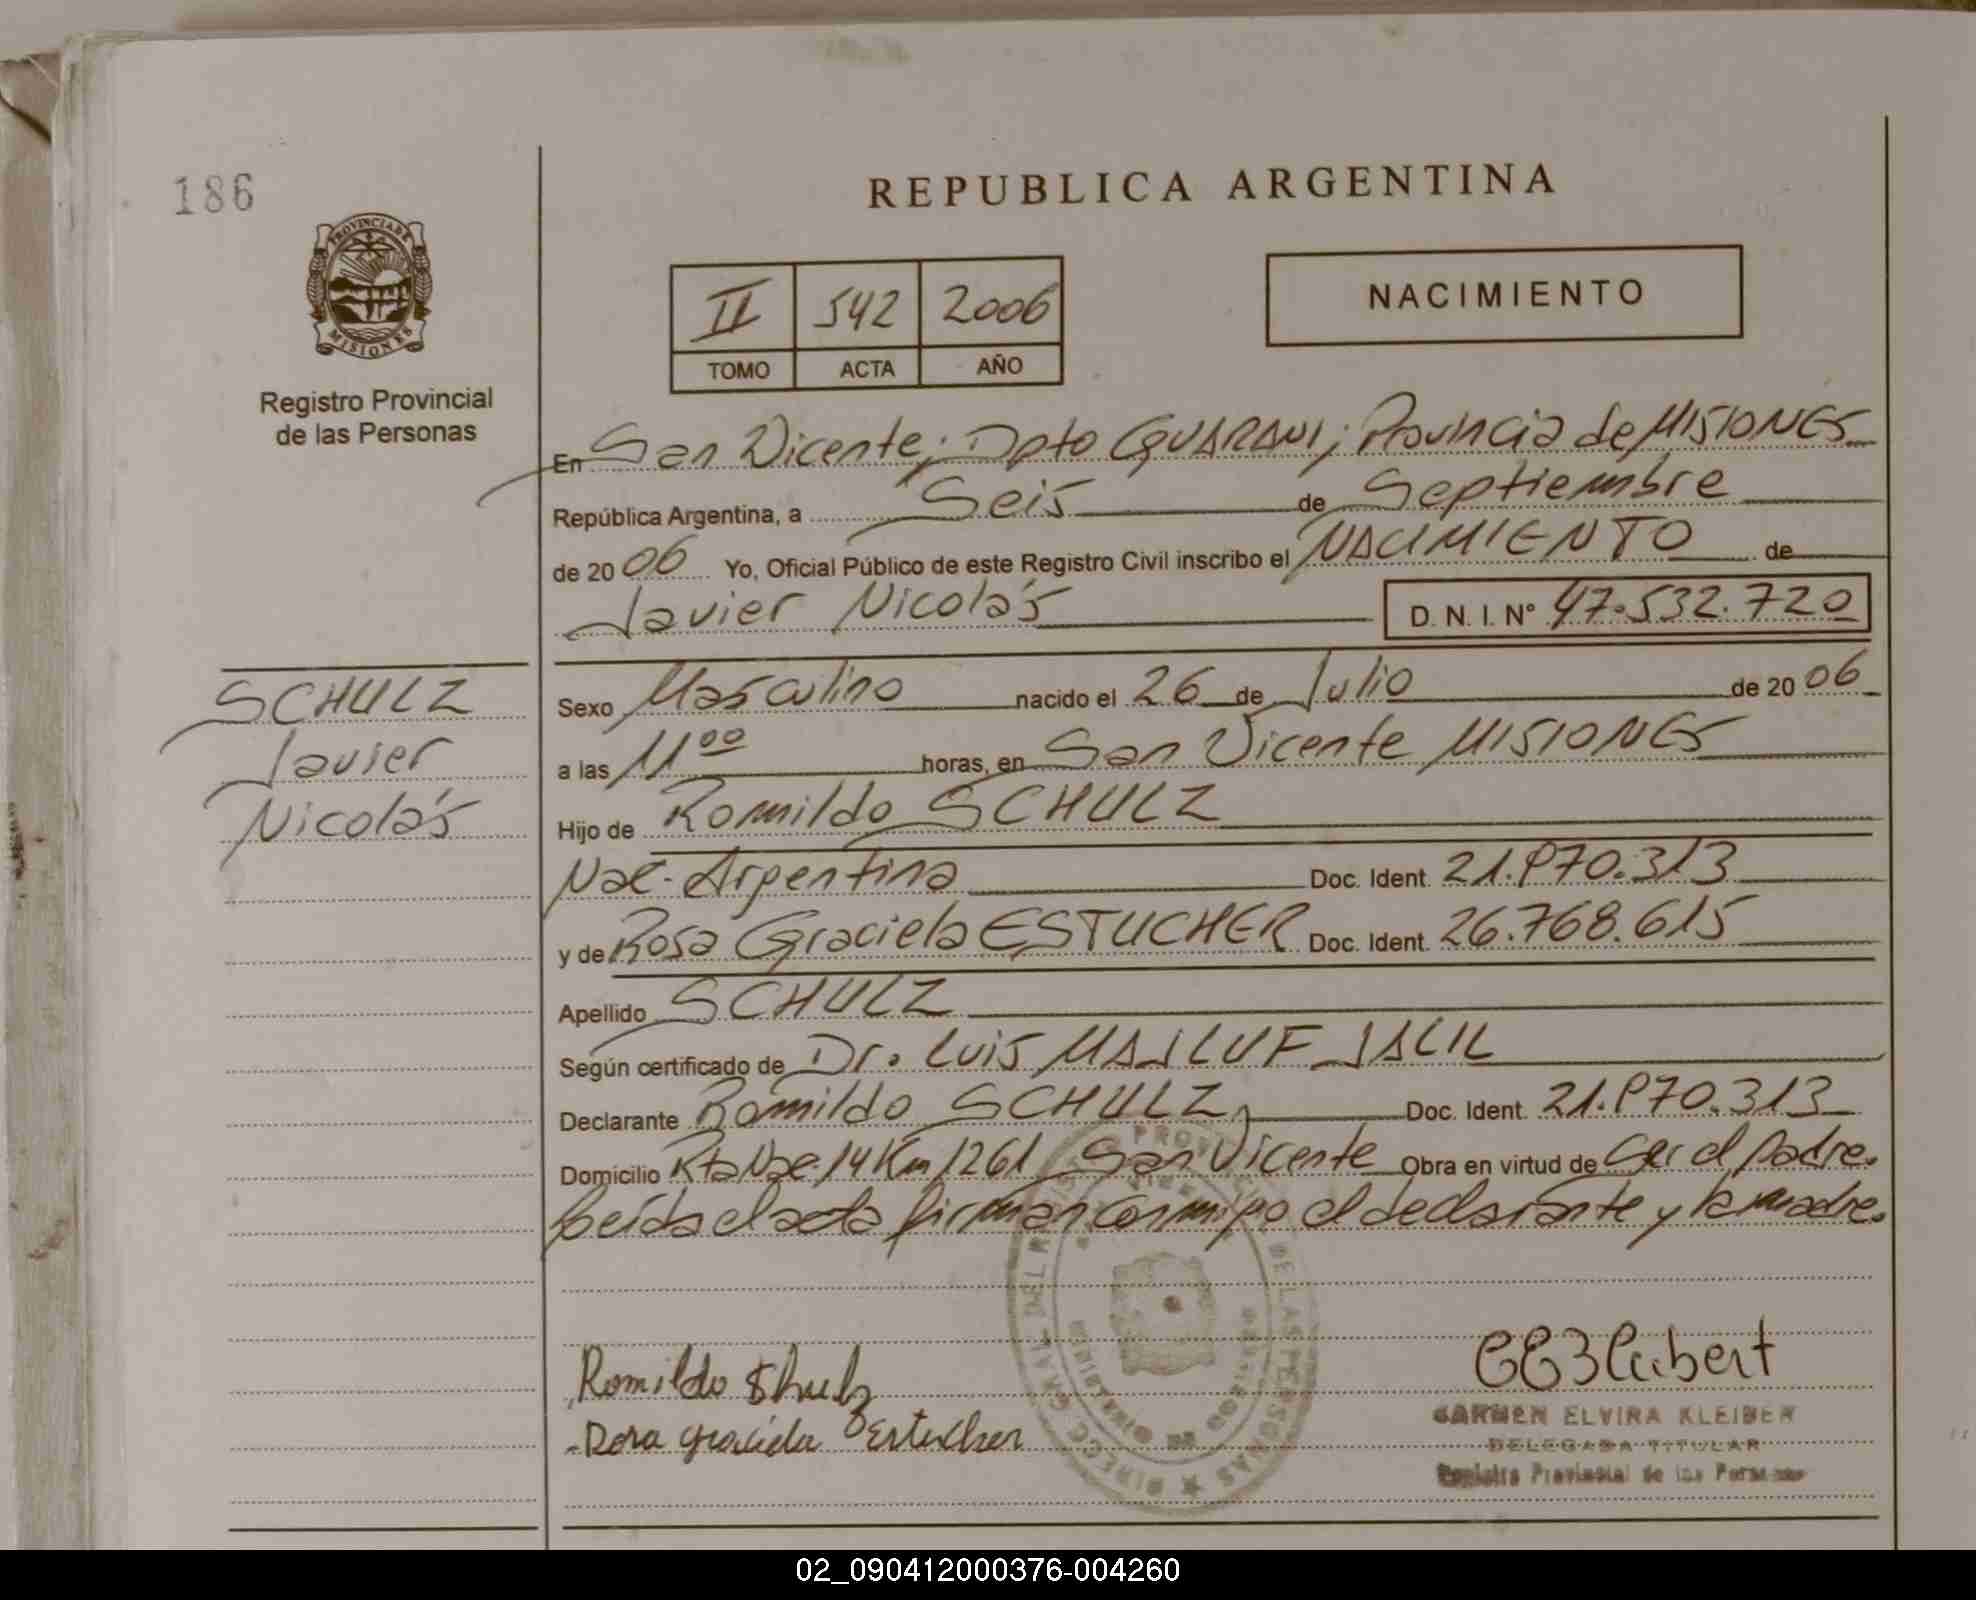 186
REPUBLICA ARGENTINA
PROVINCIA DE
MISIONES
Registro Provincial
de las Personas
II 542 2006
TOMO ACTA AÑO
NACIMIENTO
En San Vicente; Dpto GUARANI; Provincia de MISIONES
República Argentina, a Seis de Septiembre
de 2006 Yo, Oficial Público de este Registro Civil inscribo el NACIMIENTO de
Javier Nicolás D. N. I. Nº 47.532.720
SCHULZ
Javier
Nicolás
Sexo Masculino nacido el 26 de Julio de 2006
a las 11⁰⁰ horas, en San Vicente MISIONES
Hijo de Romildo SCHULZ
Nac. Argentina Doc. Ident. 21.970.313
y de Rosa Graciela ESTUCHER Doc. Ident. 26.768.615
Apellido SCHULZ
Según certificado de Dr. Luis MASLUF JALIL
Declarante Romildo SCHULZ Doc. Ident. 21.970.313
Domicilio Rta Nac. 14 Km 1261 San Vicente Obra en virtud de Ser el padre.
Leída el acta firman conmigo el declarante y la madre.
Romildo Shulz
Rosa graciela Estucher
DIRECC. GRAL. DEL REGISTRO PROV. DE LAS PERSONAS
CARMEN ELVIRA KLEIBER
DELEGADA TITULAR
Registro Provincial de las Personas
02_090412000376-004260